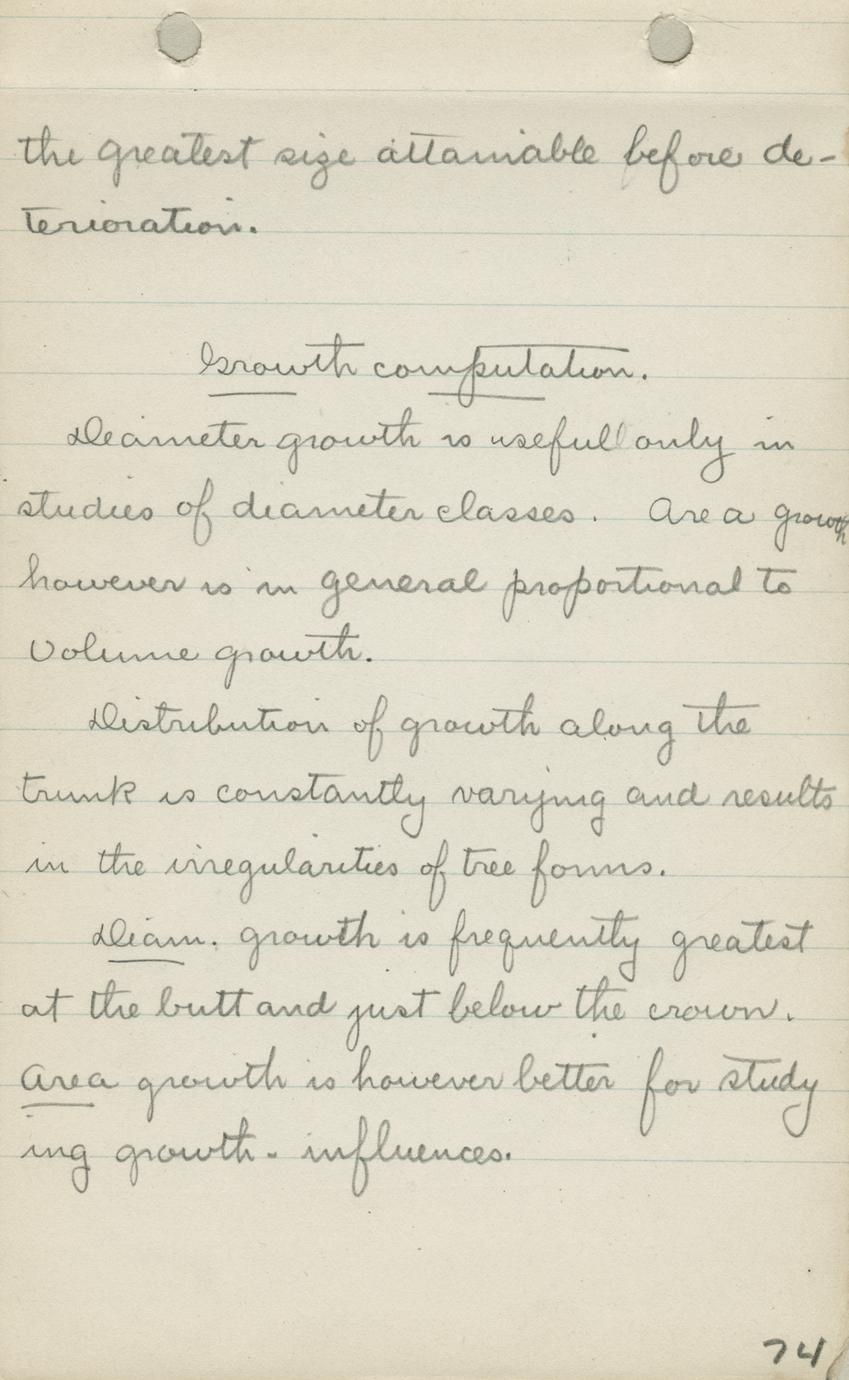 the greatest size attainable before de-
terioration.
Growth computation.
Diameter growth is useful only in
studies of diameter classes. Area growth
however is in general proportional to
Volume growth.
Distribution of growth along the
trunk is constantly varying and results
in the irregularities of tree forms.
Diam. growth is frequently greatest
at the butt and just below the crown.
Area growth is however better for study
ing growth - influences.
74